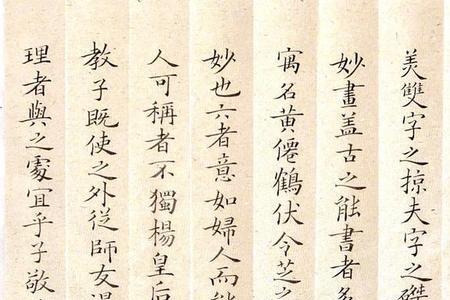 美雙字之掠夫字之磔
妙畫盖古之能書者名
寓名黃僊鶴伏令芝之
妙也六者意如婦人而能
人可稱者不獨楊皇后
教子既使之外従師友湯
理者與之處宜乎子敬